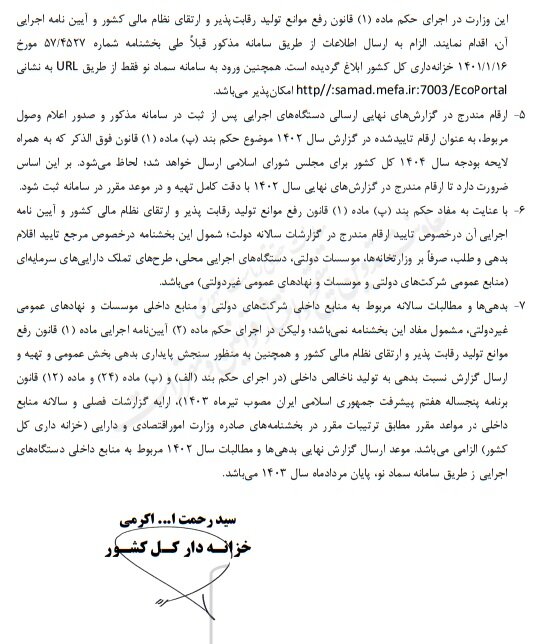 این وزارت در اجرای حکم ماده (۱) قانون رفع موانع تولید رقابت‌پذیر و ارتقای نظام مالی کشور و آیین نامه اجرایی
آن، اقدام نمایند. الزام به ارسال اطلاعات از طریق سامانه مذکور قبلاً طی بخشنامه شماره ۵۷/۴۵۲۷ مورخ
۱۴۰۱/۱/۱۶ خزانه‌داری کل کشور ابلاغ گردیده است. همچنین ورود به سامانه سماد نو فقط از طریق URL به نشانی
http//:samad.mefa.ir:7003/EcoPortal امکان‌پذیر می‌باشد.
۵- ارقام مندرج در گزارش‌های نهایی ارسالی دستگاه‌های اجرایی پس از ثبت در سامانه مذکور و صدور اعلام وصول
مربوط، به عنوان ارقام تاییدشده در گزارش سال ۱۴۰۲ موضوع حکم بند (پ) ماده (۱) قانون فوق الذکر که به همراه
لایحه بودجه سال ۱۴۰۴ کل کشور برای مجلس شورای اسلامی ارسال خواهد شد؛ لحاظ می‌شود. بر این اساس
ضرورت دارد تا ارقام مندرج در گزارش‌های نهایی سال ۱۴۰۲ با دقت کامل تهیه و در موعد مقرر در سامانه ثبت شود.
۶- با عنایت به مفاد حکم بند (پ) ماده (۱) قانون رفع موانع تولید رقابت پذیر و ارتقای نظام مالی کشور و آیین نامه
اجرایی آن درخصوص تایید ارقام مندرج در گزارشات سالانه دولت؛ شمول این بخشنامه درخصوص مرجع تایید اقلام
بدهی و طلب، صرفاً بر وزارتخانه‌ها، موسسات دولتی، دستگاه‌های اجرایی محلی، طرح‌های تملک دارایی‌های سرمایه‌ای
(منابع عمومی شرکت‌های دولتی و موسسات و نهادهای عمومی غیردولتی) می‌باشد.
۷- بدهی‌ها و مطالبات سالانه مربوط به منابع داخلی شرکت‌های دولتی و منابع داخلی موسسات و نهادهای عمومی
غیردولتی، مشمول مفاد این بخشنامه نمی‌باشد؛ ولیکن در اجرای حکم ماده (۲) آیین‌نامه اجرایی ماده (۱) قانون رفع
موانع تولید رقابت پذیر و ارتقای نظام مالی کشور و همچنین به منظور سنجش پایداری بدهی بخش عمومی و تهیه و
ارسال گزارش نسبت بدهی به تولید ناخالص داخلی (در اجرای حکم بند (الف) و (پ) ماده (۲۴) و ماده (۱۲) قانون
برنامه پنجساله هفتم پیشرفت جمهوری اسلامی ایران مصوب تیرماه ۱۴۰۳)، ارایه گزارشات فصلی و سالانه منابع
داخلی در مواعد مقرر مطابق ترتیبات مقرر در بخشنامه‌های صادره وزارت اموراقتصادی و دارایی (خزانه داری کل
کشور) الزامی می‌باشد. موعد ارسال گزارش نهایی بدهی‌ها و مطالبات سال ۱۴۰۲ مربوط به منابع داخلی دستگاه‌های
اجرایی ز طریق سامانه سماد نو، پایان مردادماه سال ۱۴۰۳ می‌باشد.
سید رحمت ا... اکرمی
خزانه دار کل کشور